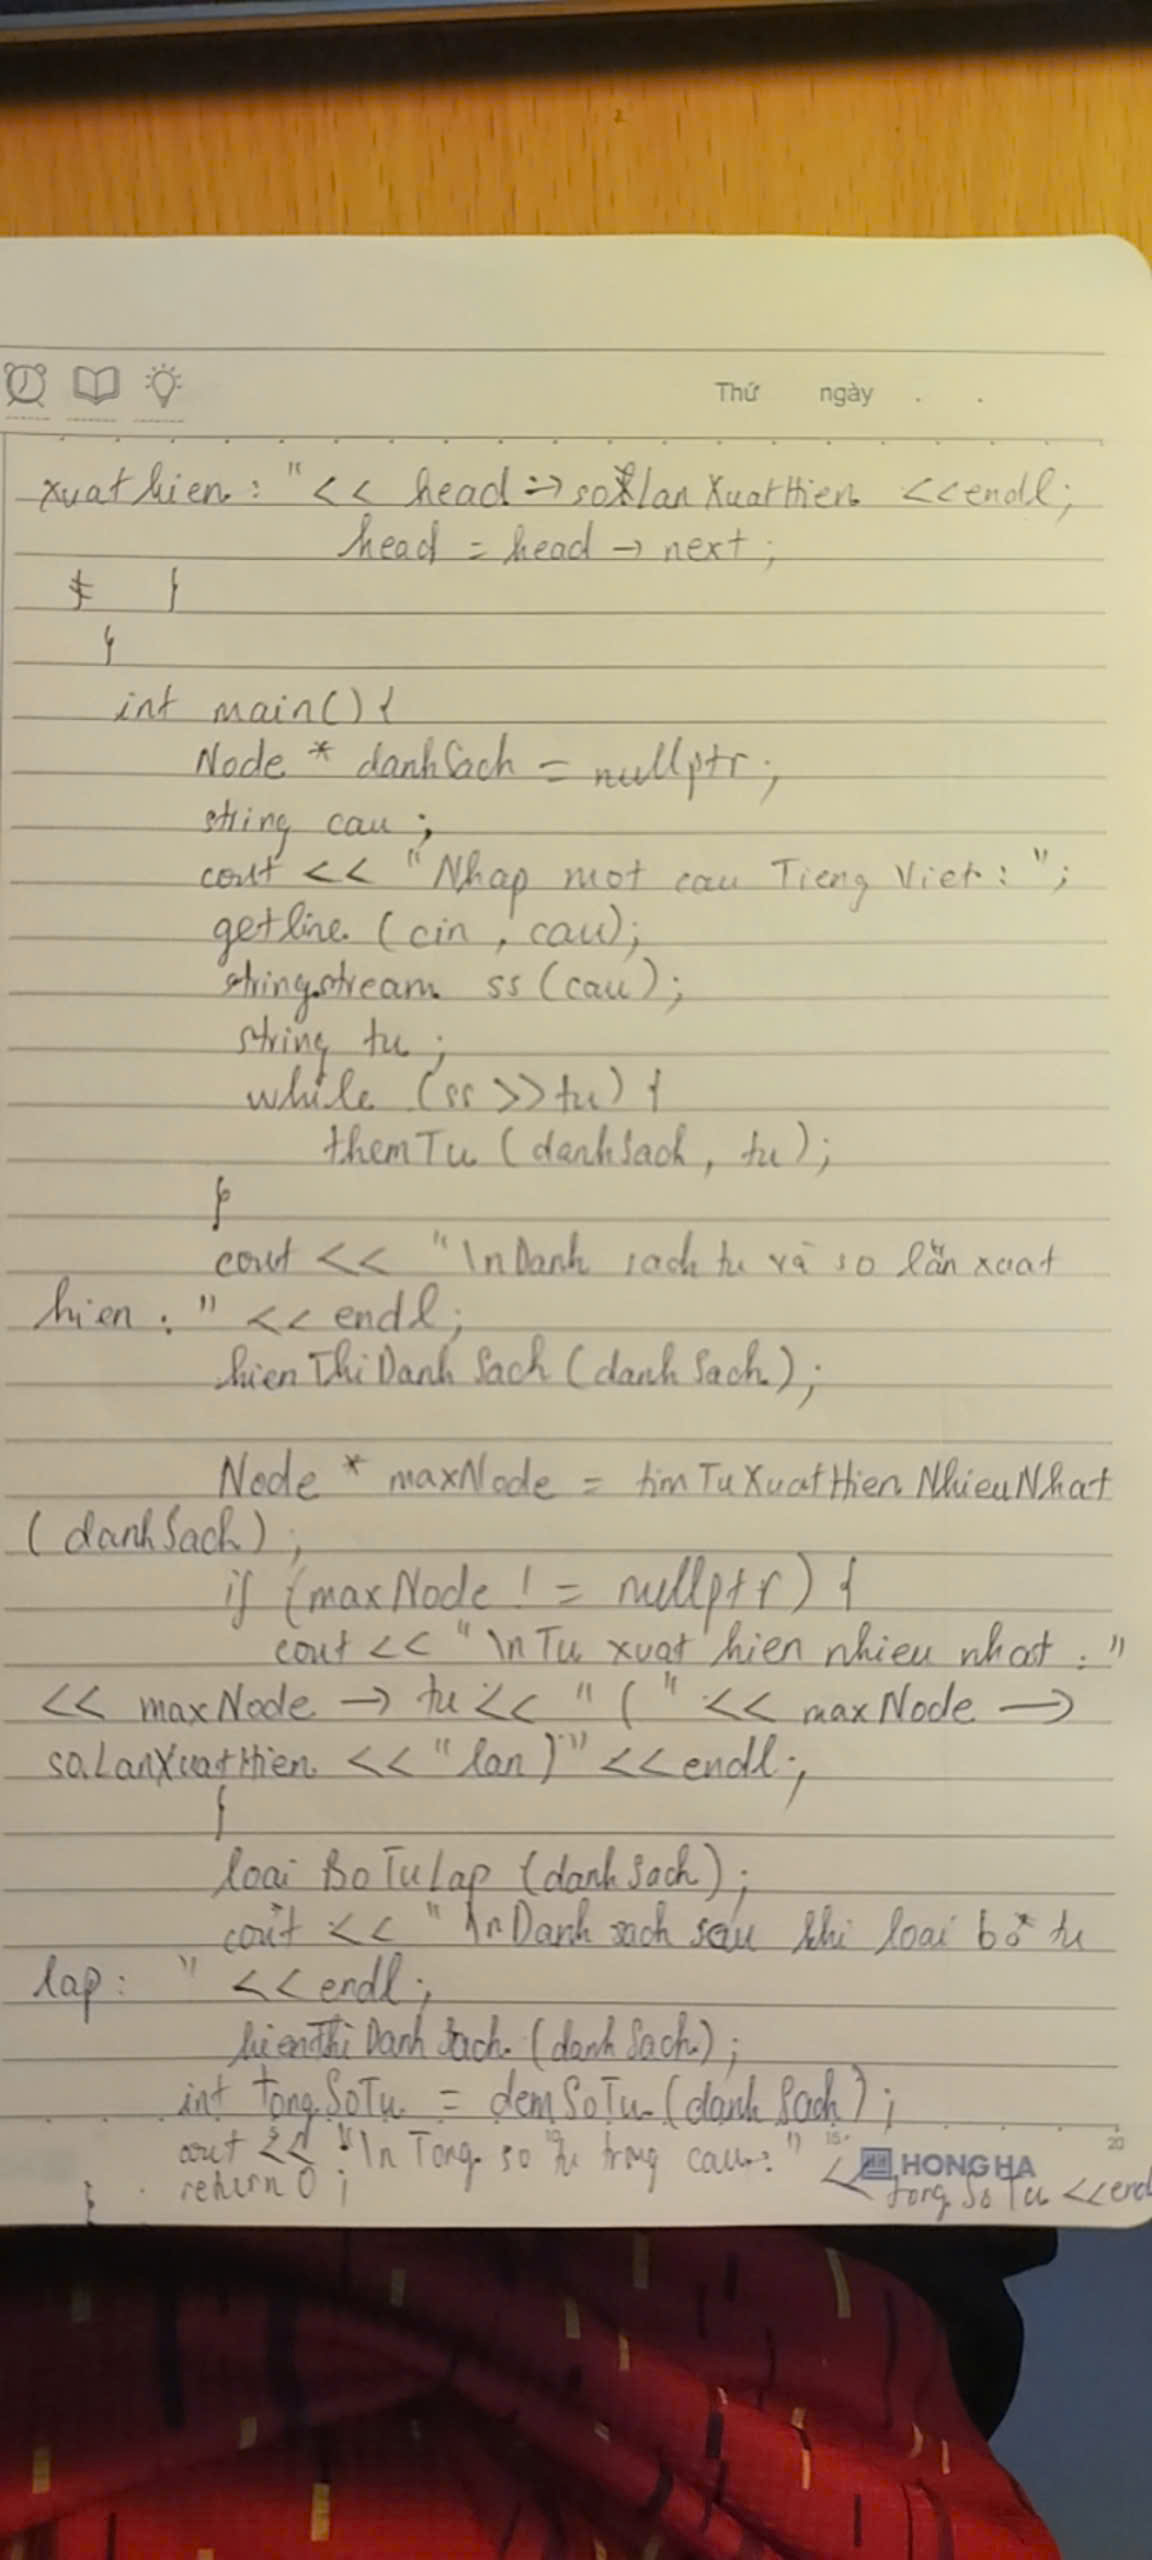 Thứ ngày . .
xuat hien : " << head -> soLanXuatHien << endl;
head = head -> next ;
}
}
int main() {
Node * danhSach = nullptr ;
string cau ;
cout << " Nhap mot cau Tieng Viet : " ;
getline ( cin , cau);
stringstream ss (cau) ;
string tu ;
while (ss >> tu) {
themTu ( danhSach , tu );
}
cout << " \n Danh sach tu và so lần xuat
hien : " << endl ;
hienThiDanhSach ( danhSach ) ;
Node * maxNode = timTuXuatHienNhieuNhat
( danhSach ) ;
if (maxNode != nullptr ) {
cout << " \n Tu xuat hien nhieu nhat : "
<< maxNode -> tu << " ( " << maxNode ->
soLanXuatHien << " lan ) " << endl ;
}
loai Bo Tu Lap (danhSach) ;
cout << " \n Danh sach sau khi loai bỏ tu
lap : " << endl ;
hienThiDanhSach (danhSach) ;
int tongSoTu = demSoTu (danhSach) ;
cout << " \n Tong so tu trong cau : " << tongSoTu << end
return 0 ;
}
HONG HA
15 20